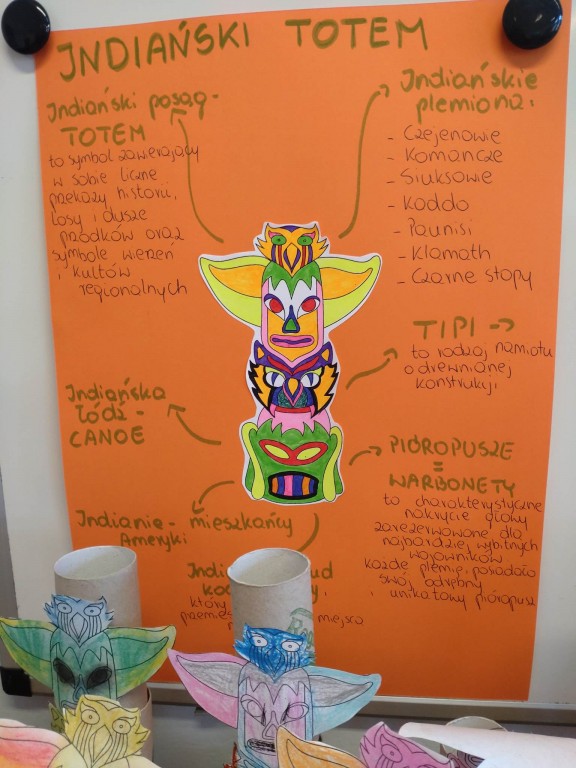 INDIAŃSKI TOTEM
Indiański posąg-
TOTEM
to symbol zawierający
w sobie liczne
przekazy, historii,
losy i dusze
przodków oraz
symbole wierzeń
i kultów
regionalnych
Indiańskie
plemiona:
- Czejenowie
- Komancze
- Siuksowie
- Koddo
- Paunisi
- Klamath
- Czarne stopy
TIPI →
to rodzaj namiotu
o drewnianej
konstrukcji
Indiańska
łódź -
CANOE
PIÓROPUSZE
=
WARBONETY
to charakterystyczne
nakrycie głowy
zarezerwowane dla
najbardziej wybitnych
wojowników
każde plemię posiadało
swój odrębny
i unikatowy pióropusz
Indianie - mieszkańcy
Ameryki
Indi ud
ko
któr
przemie miejsca